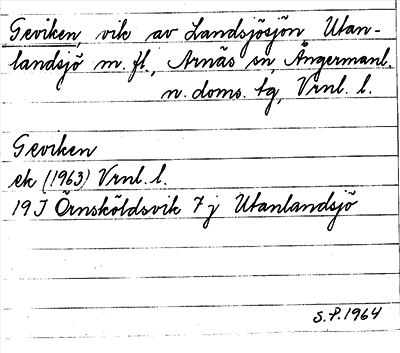 Geviken, vik av Landsjösjön, Utan-
landsjö m. fl., Arnäs sn, Ångermanl.
n. doms. tg, Vrnl. l.
Geviken
ek (1963) Vrnl. l.
19 J Örnsköldsvik 7 y Utanlandsjö
S. P. 1964